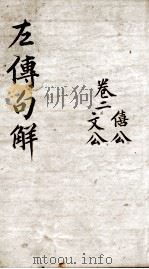 左傳句解
僖公
卷二文公
mtoou.info